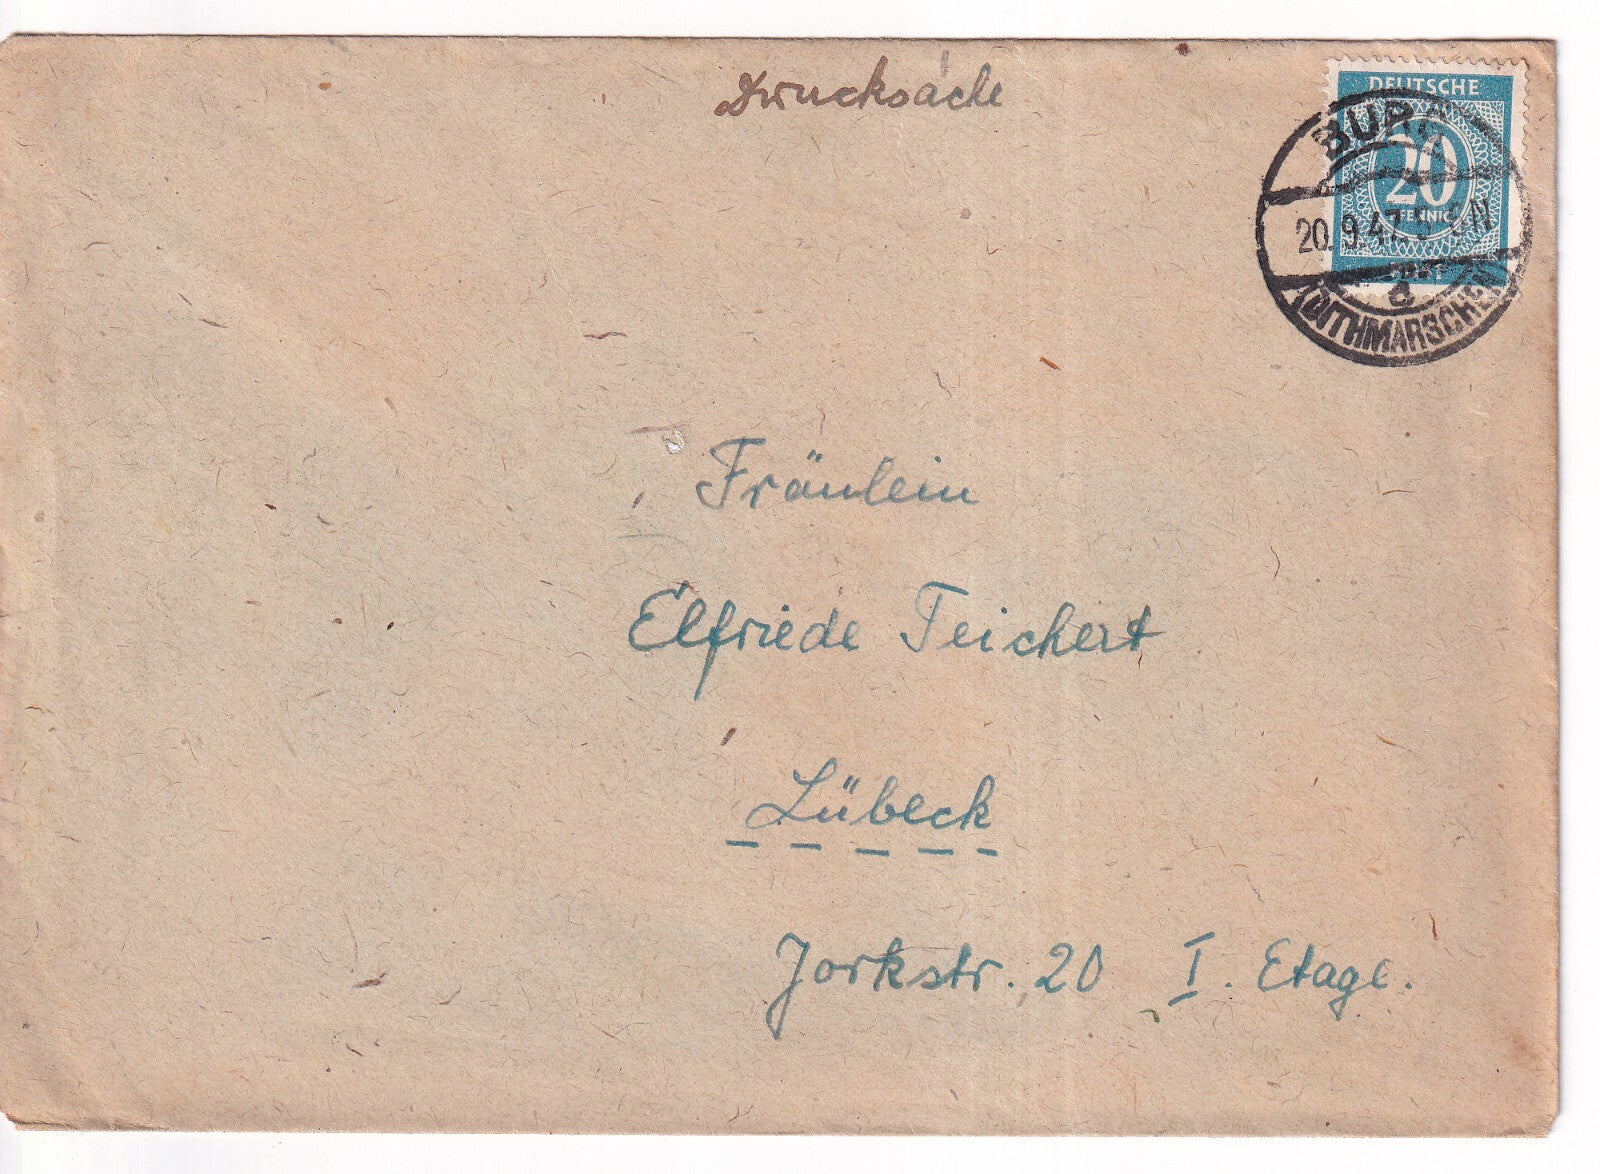 Drucksache
DEUTSCHE
20
PFENNIG
POST
BURG
20.9.47.
a
(DITHMARSCHEN)
Fräulein
Elfriede Teichert
Lübeck
Jorkstr. 20 I. Etage.